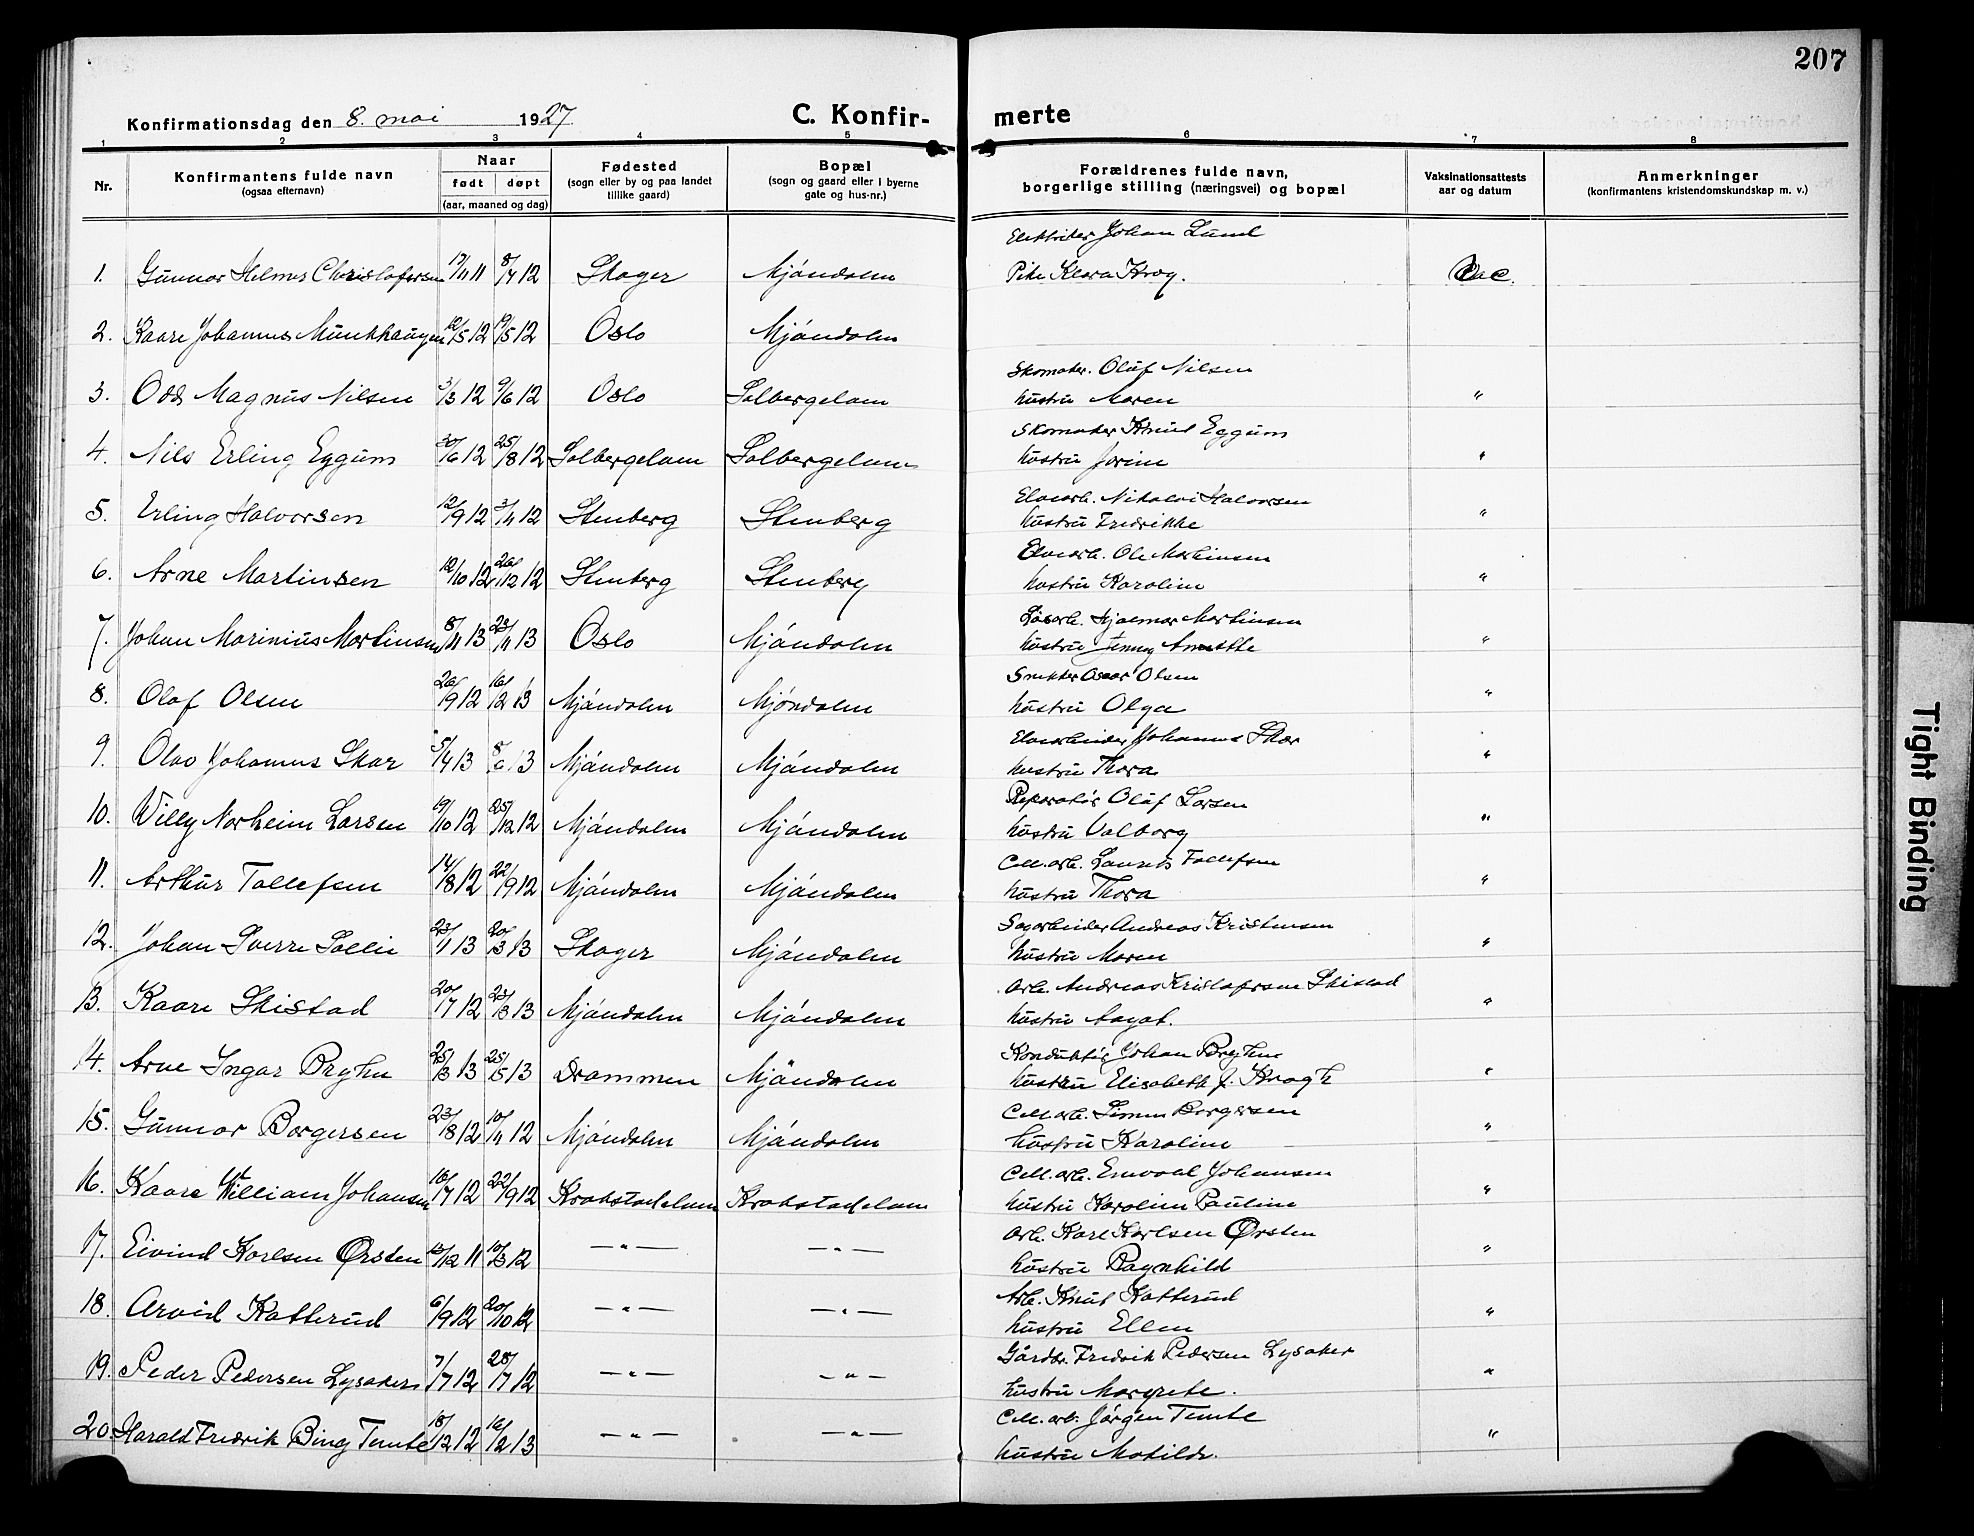 207
Konfirmationsdag den 8. mai 1927
C. Konfir- merte
1 2 3 4 5 6 7 8
Nr. Konfirmantens fulde navn (ogsaa efternavn) Naar født døpt (aar, maaned og dag) Fødested (sogn eller by og paa landet tillike gaard) Bopæl (sogn og gaard eller i byerne gate og hus-nr.) Forældrenes fulde navn, borgerlige stilling (næringsvei) og bopæl Vaksinationsattests aar og datum Anmerkninger (konfirmantens kristendomskundskap m. v.)
Elektriker Johan Lund
1. Gunnar Helmer Christofersen 17/11 11 8/4 12 Skoger Mjöndalen Pike Klara Krog. Vac.
2. Kaare Johannes Munkhaugen 12/5 12 19/5 12 Oslo Mjöndalen
Skomaker. Oluf Nilsen
3. Odd Magnus Nilsen 3/3 12 9/6 12 Oslo Solbergelven hustru Maren "
Skomaker Knut Eggum
4. Nils Erling Eggum 30/6 12 25/8 12 Solbergelven Solbergelven hustru Jorine "
Elvearb. Nikolai Halvorsen
5. Erling Halvorsen 12/9 12 3/11 12 Stenberg Stenberg hustru Fredrikke "
Elvearb. Ole Martinsen
6. Arne Martinsen 12/10 12 26/12 12 Stenberg Stenberg hustru Karoline "
Løsarb. Hjalmar Martinsen
7. Johan Marinius Martinsen 8/11 13 23/11 13 Oslo Mjöndalen hustru Jenny Annette "
Snekker Oscar Olsen
8. Olaf Olsen 26/9 12 16/2 13 Mjöndalen Mjöndalen hustru Olga "
Elvearbeider Johannes Skar
9. Olav Johannes Skar 5/4 13 8/6 13 Mjöndalen Mjöndalen hustru Thora "
Reparatör Oluf Larsen
10. Willy Norheim Larsen 19/10 12 25/12 12 Mjöndalen Mjöndalen hustru Valborg "
Cell. arb. Laurits Tollefsen
11. Arthur Tollefsen 14/8 12 22/9 12 Mjöndalen Mjöndalen hustru Thora "
Sagarbeider Andreas Kristensen
12. Johan Sverre Sollie 23/1 13 20/3 13 Skoger Mjöndalen hustru Maren "
Arb. Andreas Kristofersen Skistad
13. Kaare Skistad 20/7 12 23/3 13 Mjöndalen Mjöndalen hustru Aagot. "
Konduktör Johan Bryhn
14. Arne Ingar Bryhn 25/3 13 25/5 13 Drammen Mjöndalen hustru Elisabeth f. Krogh "
Cell. arb. Simen Borgersen
15. Gunnar Borgersen 23/8 12 10/11 12 Mjöndalen Mjöndalen hustru Karoline "
Cell. arb. Johansen
16. Kaare William Johansen 16/7 12 22/9 12 Krokstadelven Krokstadelven hustru Karoline Pauline "
Arb. Karl Karlsen Ørsten
17. Eivind Karlsen Ørsten 13/12 11 10/3 12 — " — — " — hustru Ragnhild "
Arb. Knut Katterud
18. Arvid Katterud 6/9 12 20/10 12 — " — — " — hustru Ellen "
Gårdbr. Fredrik Pedersen Lysaker
19. Peder Pedersen Lysaker 7/7 12 28/7 12 — " — — " — hustru Margrete. "
Cell. arb. Jörgen Temte
20. Harald Fredrik Bing Temte 18/12 12 16/2 13 — " — — " — hustru Matilde. "
Tight Binding